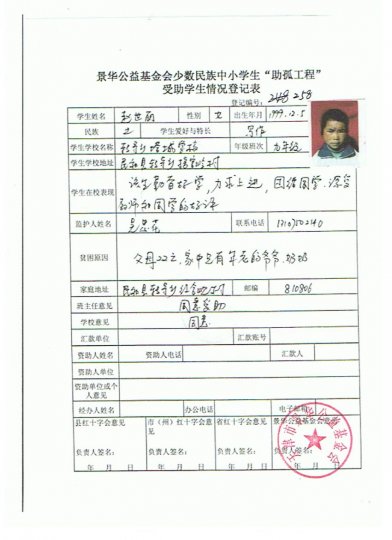 景华公益基金会少数民族中小学生“助孤工程”
受助学生情况登记表
登记编号: 258
学生姓名 赵世丽 性别 女 出生年月 1999.12.5
民族 土 学生爱好与特长 写作
学生学校名称 学校 年级班次 九年级
学生学校地址 民和县
学生在校表现 该生勤奋好学，力求上进，团结同学，深受
老师和同学的好评
监护人姓名 联系电话
贫困原因 父母双亡，家中只有年老的爷爷、奶奶
家庭地址 民和县 邮编 810806
班主任意见 同意受助
学校意见 同意
汇款单位 汇款账号
资助人姓名 资助人电话 汇款人
资助人单位
资助单位或个
人意见
经办人姓名 办公电话 电子邮箱
县红十字会意见 市（州）红十字会意见 省红十字会意见 景华公益基金会意见
负责人签名: 负责人签名: 负责人签名: 负责人签名:
年 月 日 年 月 日 年 月 日 年 月 日